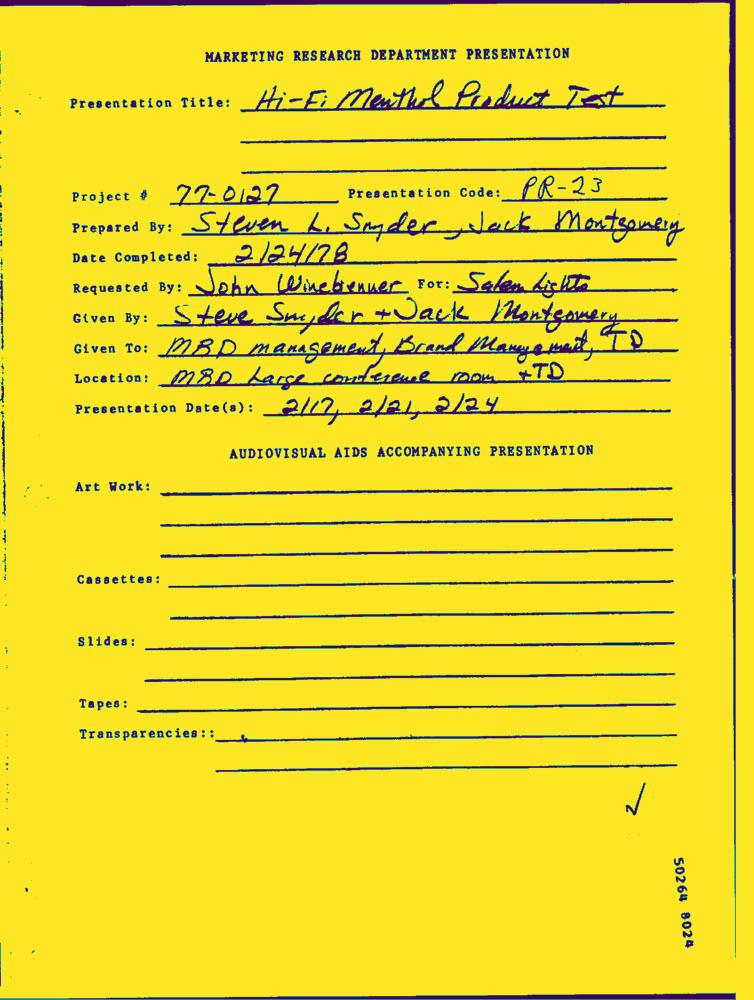 MARKETING RESEARCH DEPARTMENT PRESENTATION
Presentation Title: Hi-Fi Menthol Product Test
Project # 77-0127 Presentation Code: PR-23
Prepared By: Steven L. Snyder, Jack Montgomery
Date Completed: 2/24/78
Requested By: John Winebrenner For: Salem Lights
Given By: Steve Snyder + Jack Montgomery
Given To: MRD management, Brand Management, TD
Location: MRD Large conference room + TD
Presentation Date(s): 2/17, 2/21, 2/24
AUDIOVISUAL AIDS ACCOMPANYING PRESENTATION
Art Work:
Cassettes:
Slides:
Tapes:
Transparencies::
50264 8024